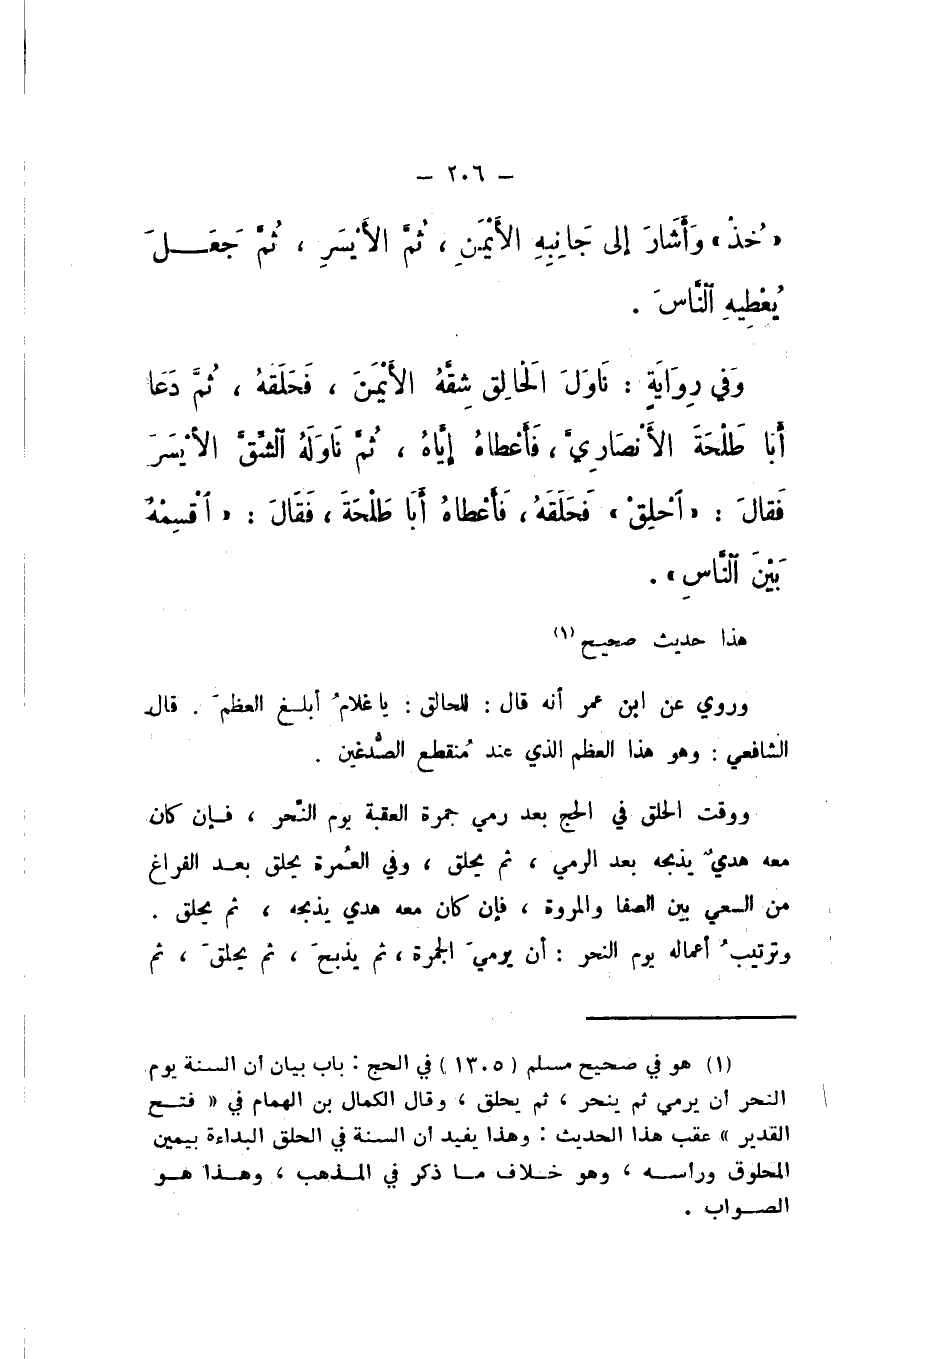 – ٢٠٦ –
«خُذْ» وَأَشَارَ إلى جَانِبِهِ الأَيْمَنِ ، ثُمَّ الأَيْسَرِ ، ثُمَّ جَعَلَ
يُعْطِيهِ ٱلنَّاسَ .
وَفي رِوَايَةٍ : نَاوَلَ الْحَالِقَ شِقَّهُ الأَيْمَنَ ، فَحَلَقَهُ ، ثُمَّ دَعَا
أَبَا طَلْحَةَ الأَنْصَارِيَّ ، فَأَعْطاهُ إِيَّاهُ ، ثُمَّ نَاوَلَهُ ٱلشِّقَّ الأَيْسَرَ
فَقالَ : «ٱحْلِقْ» فَحَلَقَهُ ، فَأَعْطاهُ أَبَا طَلْحَةَ ، فَقَالَ : «ٱقْسِمْهُ
بَيْنَ ٱلنَّاسِ» .
هذا حديث صحيح (١)
وروي عن ابن عمر أنه قال : للحالق : يا غلامُ أبلغ العظمَ . قال
الشافعي : وهو هذا العظم الذي عند مُنقطع الصُّدغين .
ووقت الحلق في الحج بعد رمي جمرة العقبة يوم النَّحر ، فإن كان
معه هديٌ يذبحه بعد الرمي ، ثم يحلق ، وفي العُمرة يحلق بعد الفراغ
من السعي بين الصفا والمروة ، فإن كان معه هدي يذبحه ، ثم يحلق .
وترتيبُ أعماله يوم النحر : أن يرميَ الجمرة ، ثم يذبحَ ، ثم يحلقَ ، ثم
(١) هو في صحيح مسلم ( ١٣٠٥ ) في الحج : باب بيان أن السنة يوم
النحر أن يرمي ثم ينحر ، ثم يحلق ، وقال الكمال بن الهمام في « فتح
القدير » عقب هذا الحديث : وهذا يفيد أن السنة في الحلق البداءة بيمين
المحلوق ورأسه ، وهو خلاف ما ذكر في المذهب ، وهذا هو
الصواب .